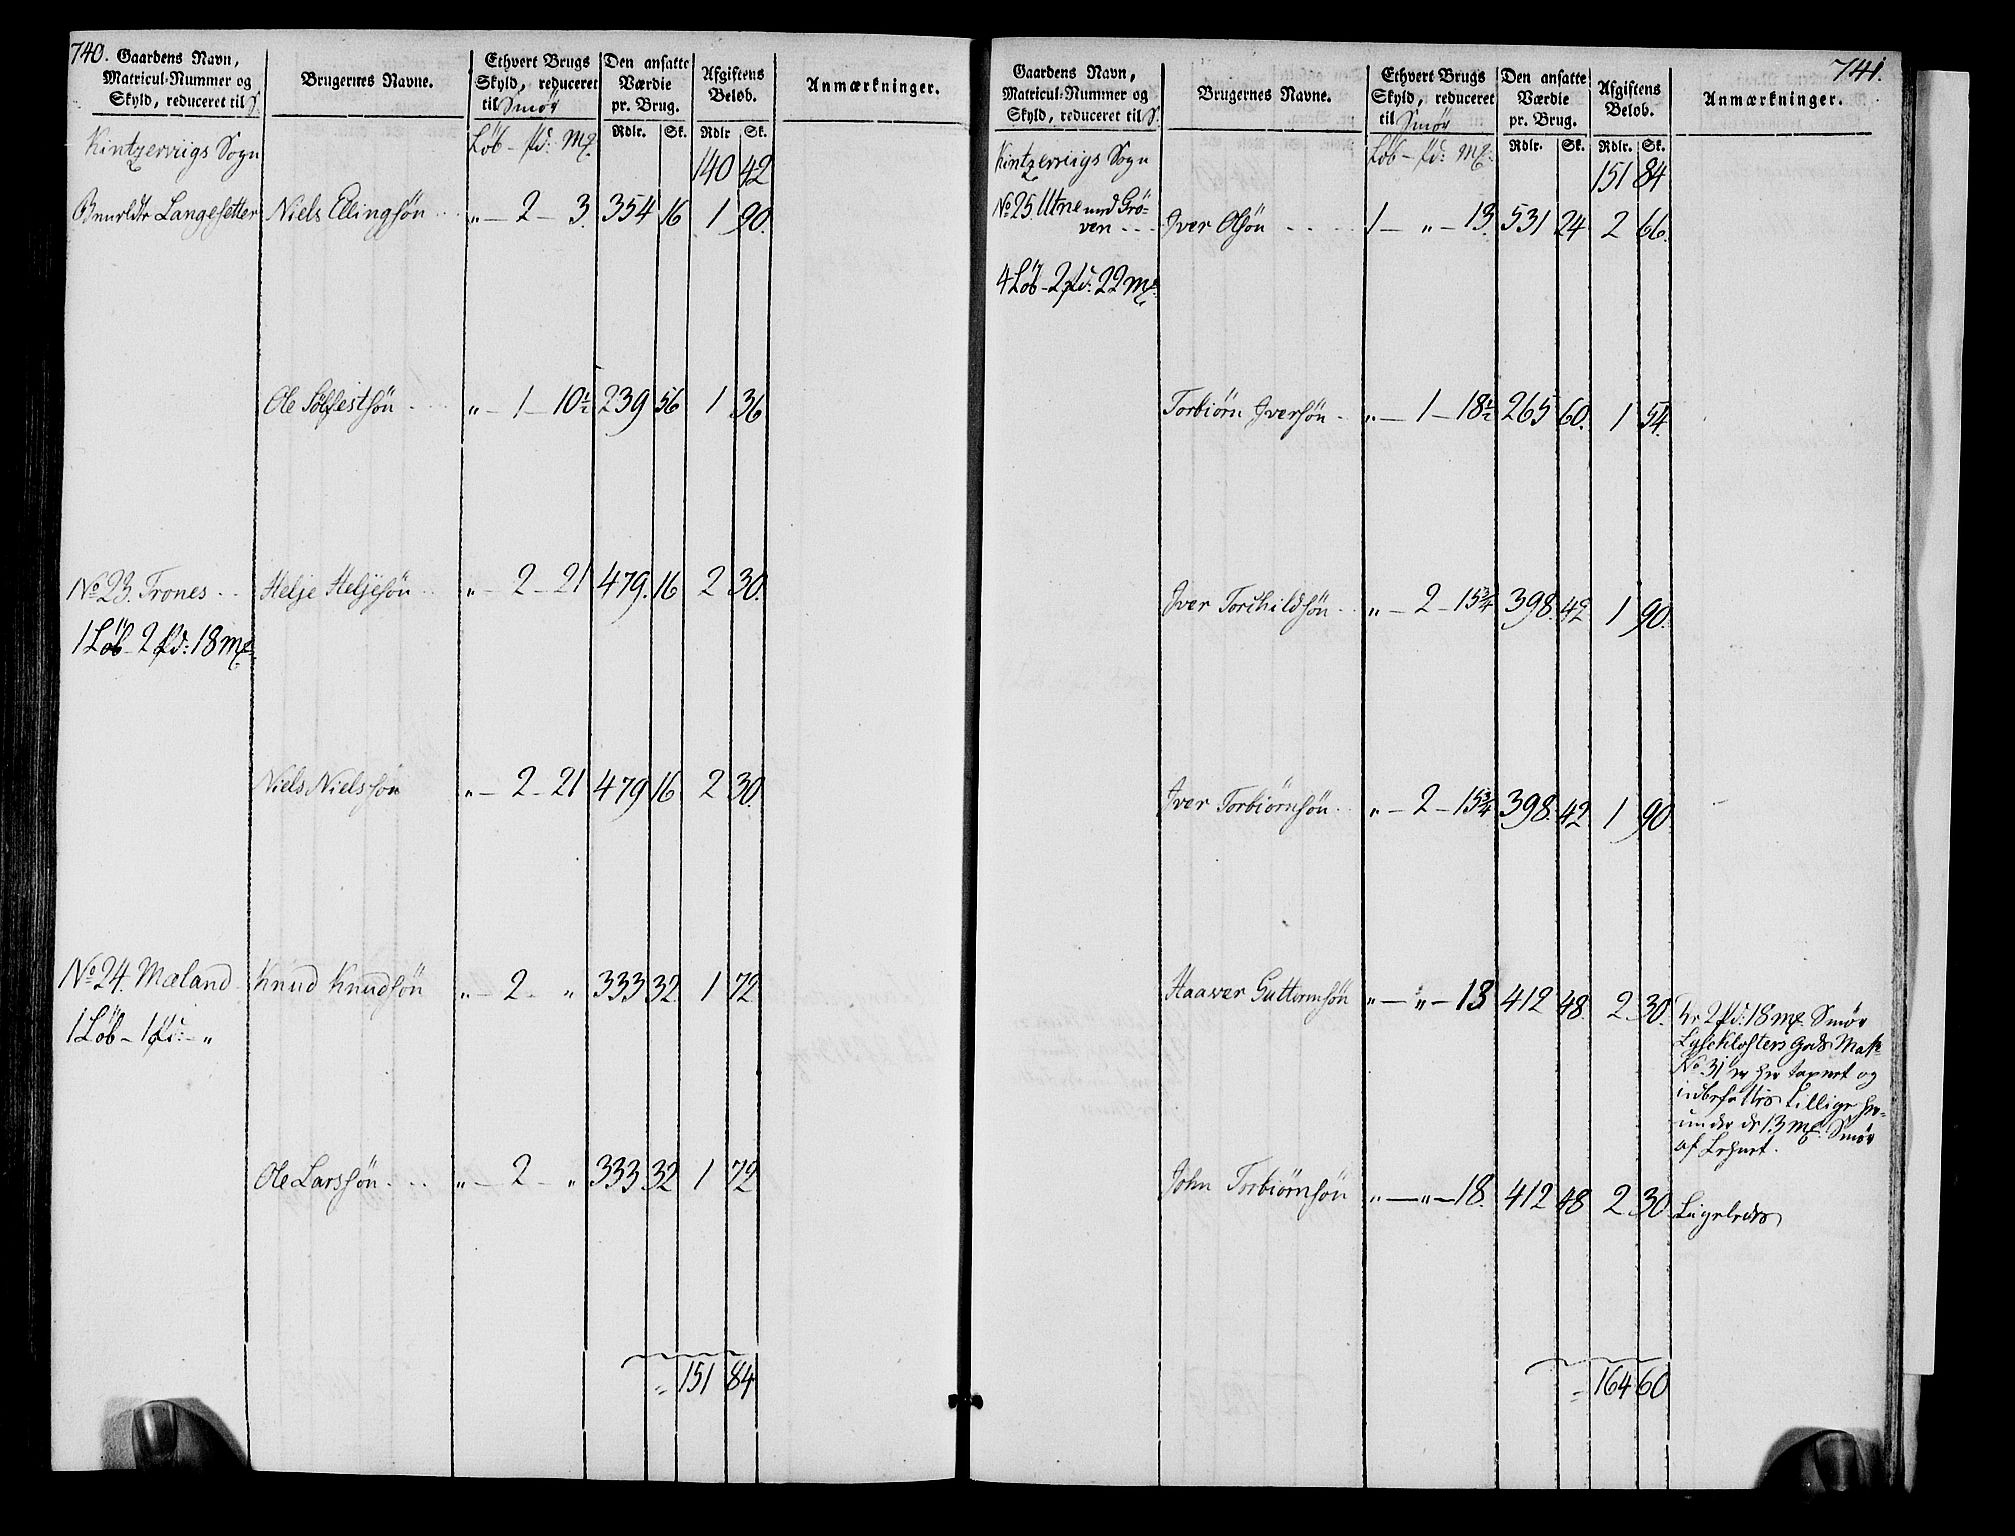 740.
Gaardens Navn, Matricul-Nummer og Skyld, reduceret til S. | Brugernes Navne. | Ethvert Brugs Skyld, reduceret til Smør | Den ansatte Værdie pr. Brug. | Afgiftens Beløb. | Anmærkninger.
Løb - pd: mk. | Rdlr. | Sk. | Rdlr | Sk.
Kintzerviigs Sogn | 140 | 42
Langesetter | Niels Ellingsøn | " - 2 - 3. | 354 | 16 | 1 | 90.
Ole Sølfestsøn | " - 1 - 10½ | 239 | 56 | 1 | 36
No 23. Trones | Helje Heljesøn | " - 2 - 21 | 479. | 16 | 2 | 30.
1 Løb - 2 pd: 18 mk.
Niels Nielssøn | " - 2 - 21 | 479 | 16 | 2 | 30.
No 24. Mæland | Knud Knudsøn | " - 2 - " | 333 | 32 | 1 | 72
1 Løb - 1 pd: - "
Ole Larssøn | " - 2 - " | 333 | 32 | 1 | 72
" 151 | 84
741.
Gaardens Navn, Matricul-Nummer og Skyld, reduceret til S. | Brugernes Navne. | Ethvert Brugs Skyld, reduceret til Smør | Den ansatte Værdie pr. Brug. | Afgiftens Beløb. | Anmærkninger.
Løb - pd: mk: | Rdlr. | Sk. | Rdlr. | Sk.
Kintzerviigs Sogn | 151 | 84
No 25. Utne med Grø-
ven | Iver Olsøn | 1 - " - 13. | 531 | 24 | 2 | 66.
4 Løb - 2 pd: 22 mk.
Torbiørn Iversøn | " - 1 - 18½ | 265 | 60. | 1 | 54.
Iver Torchildsøn | " - 2 - 15¾ | 398. | 42 | 1 | 90.
Iver Torbiørnsøn | " - 2 - 15¾ | 398. | 42 | 1 | 90
Haaver Guttormsøn | " - " - 13 | 412 | 48. | 2 | 30.
2 pd: 18 mk. Smør
Lyseklosters Gods Mat:
No 31 er her taxeret og
indbefattes tillige her-
under de 13 mk. Smør
af Lehnet.
John Torbiørnsøn | " - " - 18. | 412 | 48 | 2 | 30. | Ligeledes
" 164 | 60